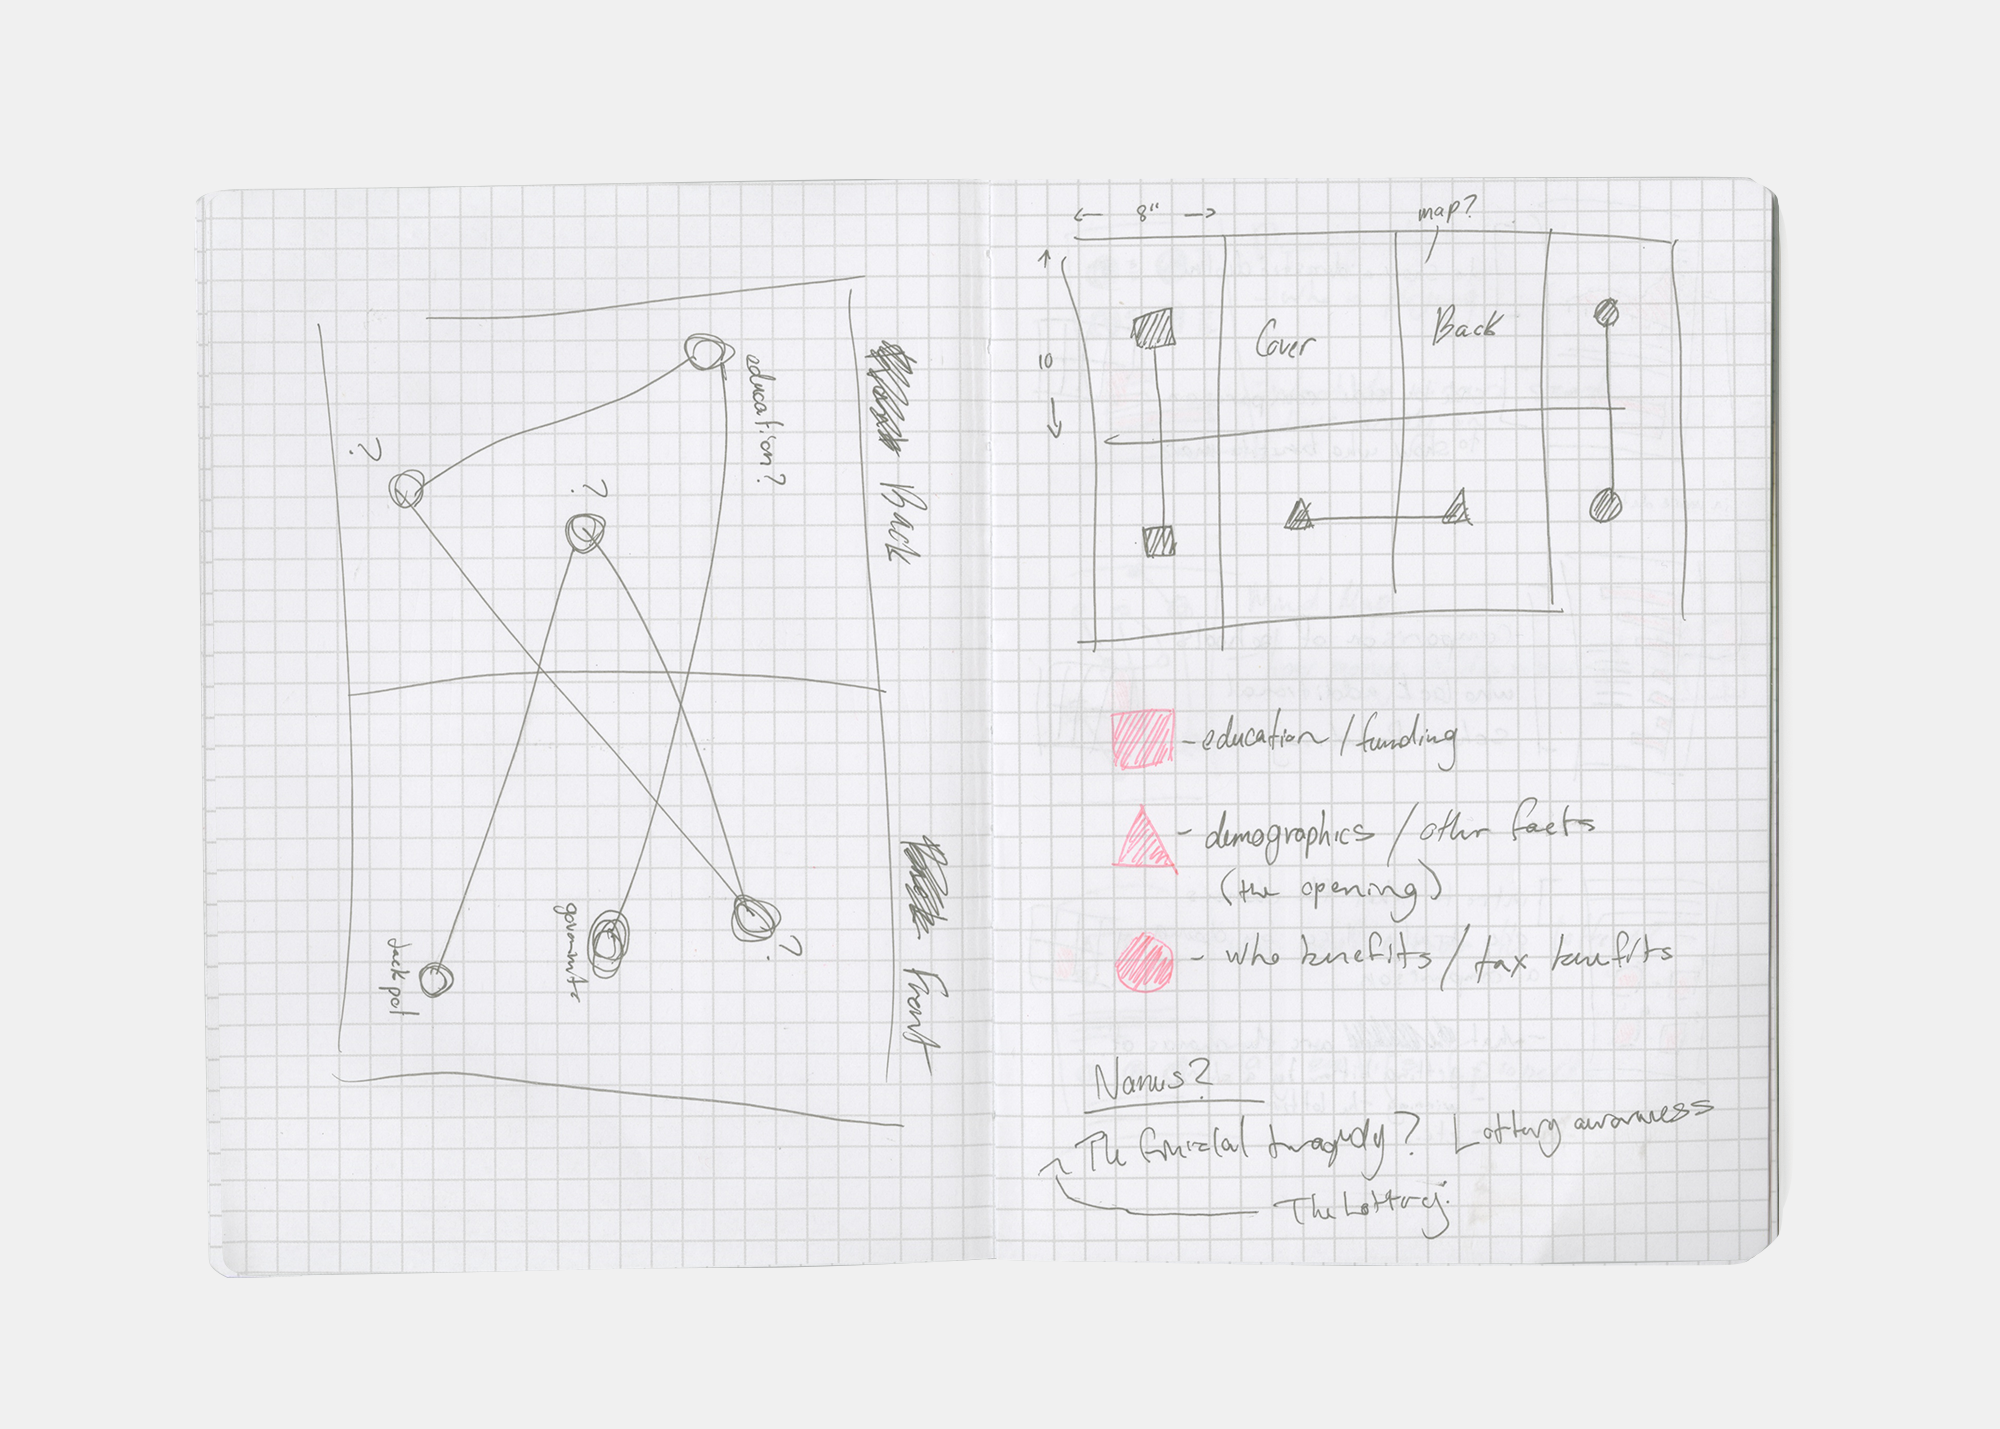 education?
Back
?
?
?
Jackpot
Front
8"
map?
10
Cover
Back
- education / funding
- demographics / other facts
(the opening)
- who benefits / tax benefits
Names?
The tragedy? Lottery awareness
The Lottery: